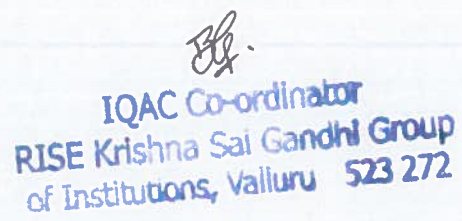 IQAC Co-ordinator
RISE Krishna Sai Gandhi Group
of Institutions, Valluru 523 272